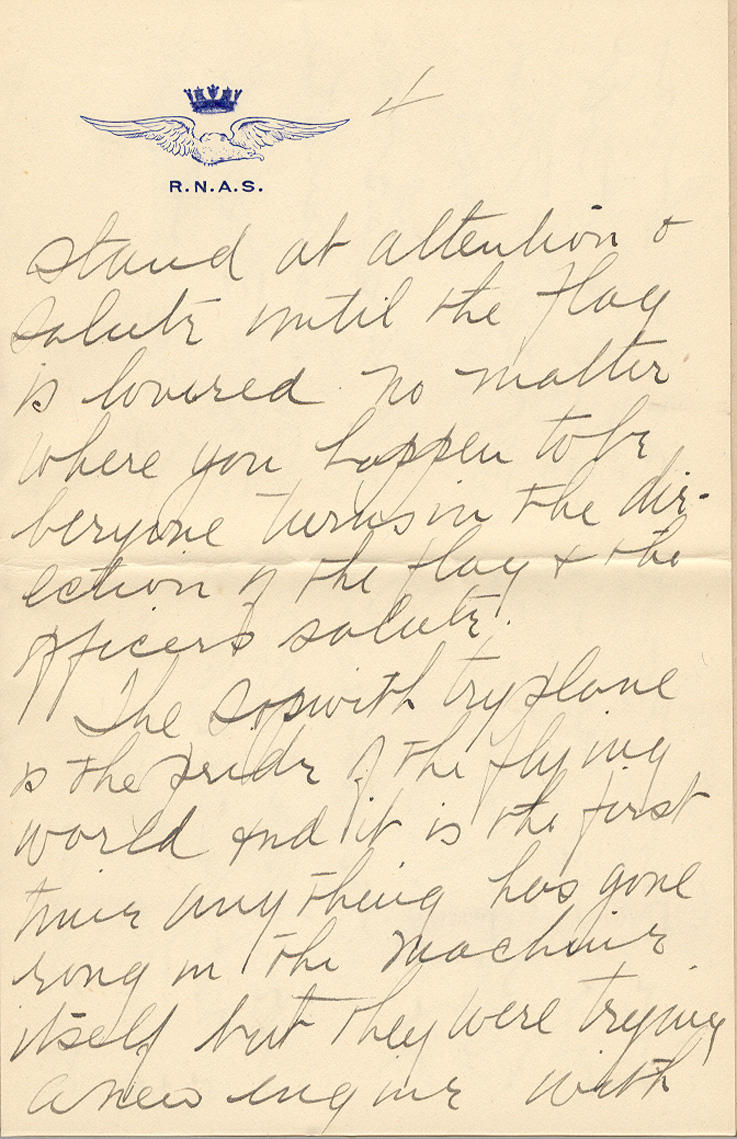 4
R.N.A.S.
stand at attention &
salute until the flag
is lowered no matter
where you happen to be
everyone turns in the dir-
ection of the flag & the
officers salute.
The Sopwith tryplane
is the pride of the flying
world and it is the first
time anything has gone
rong in the machine
itself but they were trying
a new engine with